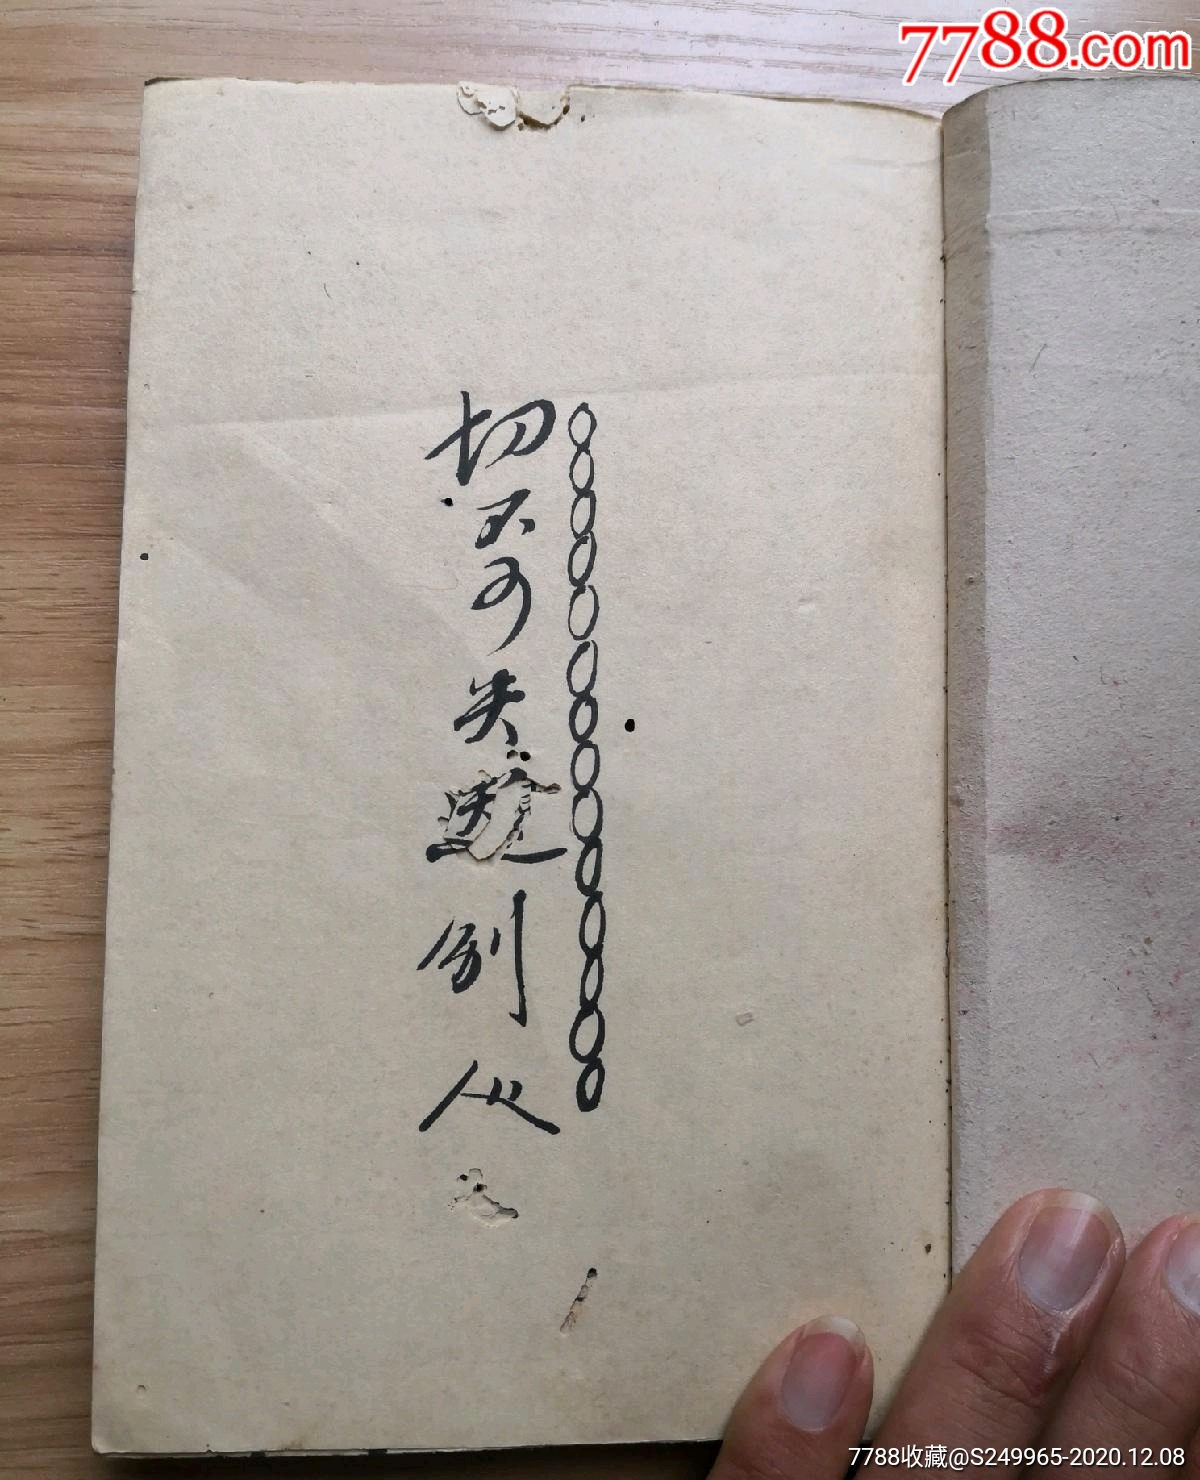 7788.com
切不可失
别人
7788收藏@S249965-2020.12.08